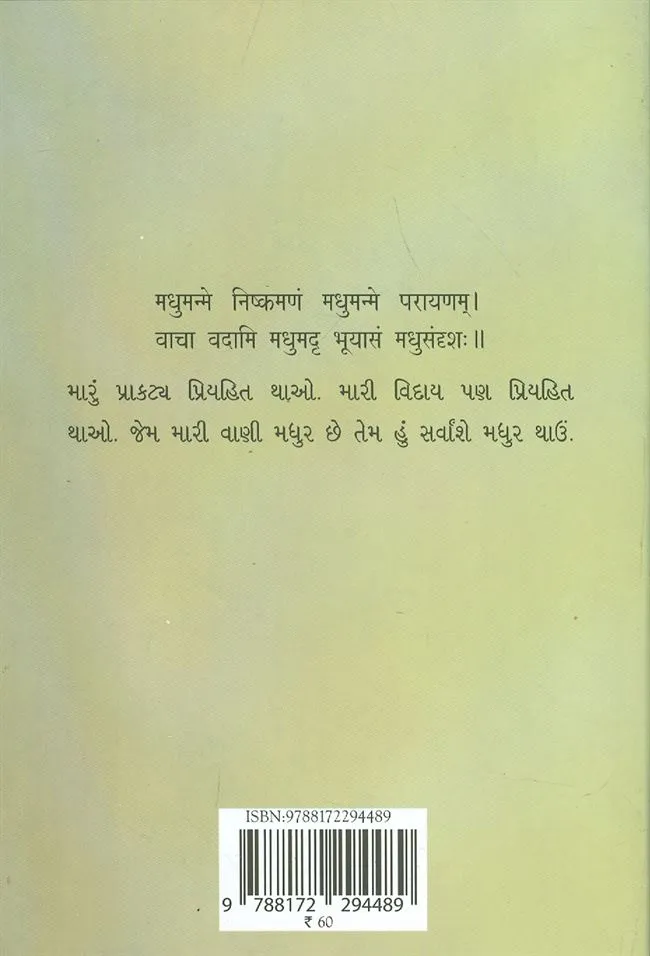 मधुमन्मे निष्कमणं मधुमन्मे परायणम्।
वाचा वदामि मधुमदृ भूयासं मधुसंदृशः॥
મારું પ્રાકટ્ય પ્રિયહિત થાઓ. મારી વિદાય પણ પ્રિયહિત
થાઓ. જેમ મારી વાણી મધુર છે તેમ હું સર્વાંશે મધુર થાઉં.
ISBN:9788172294489
9 788172 294489
₹ 60